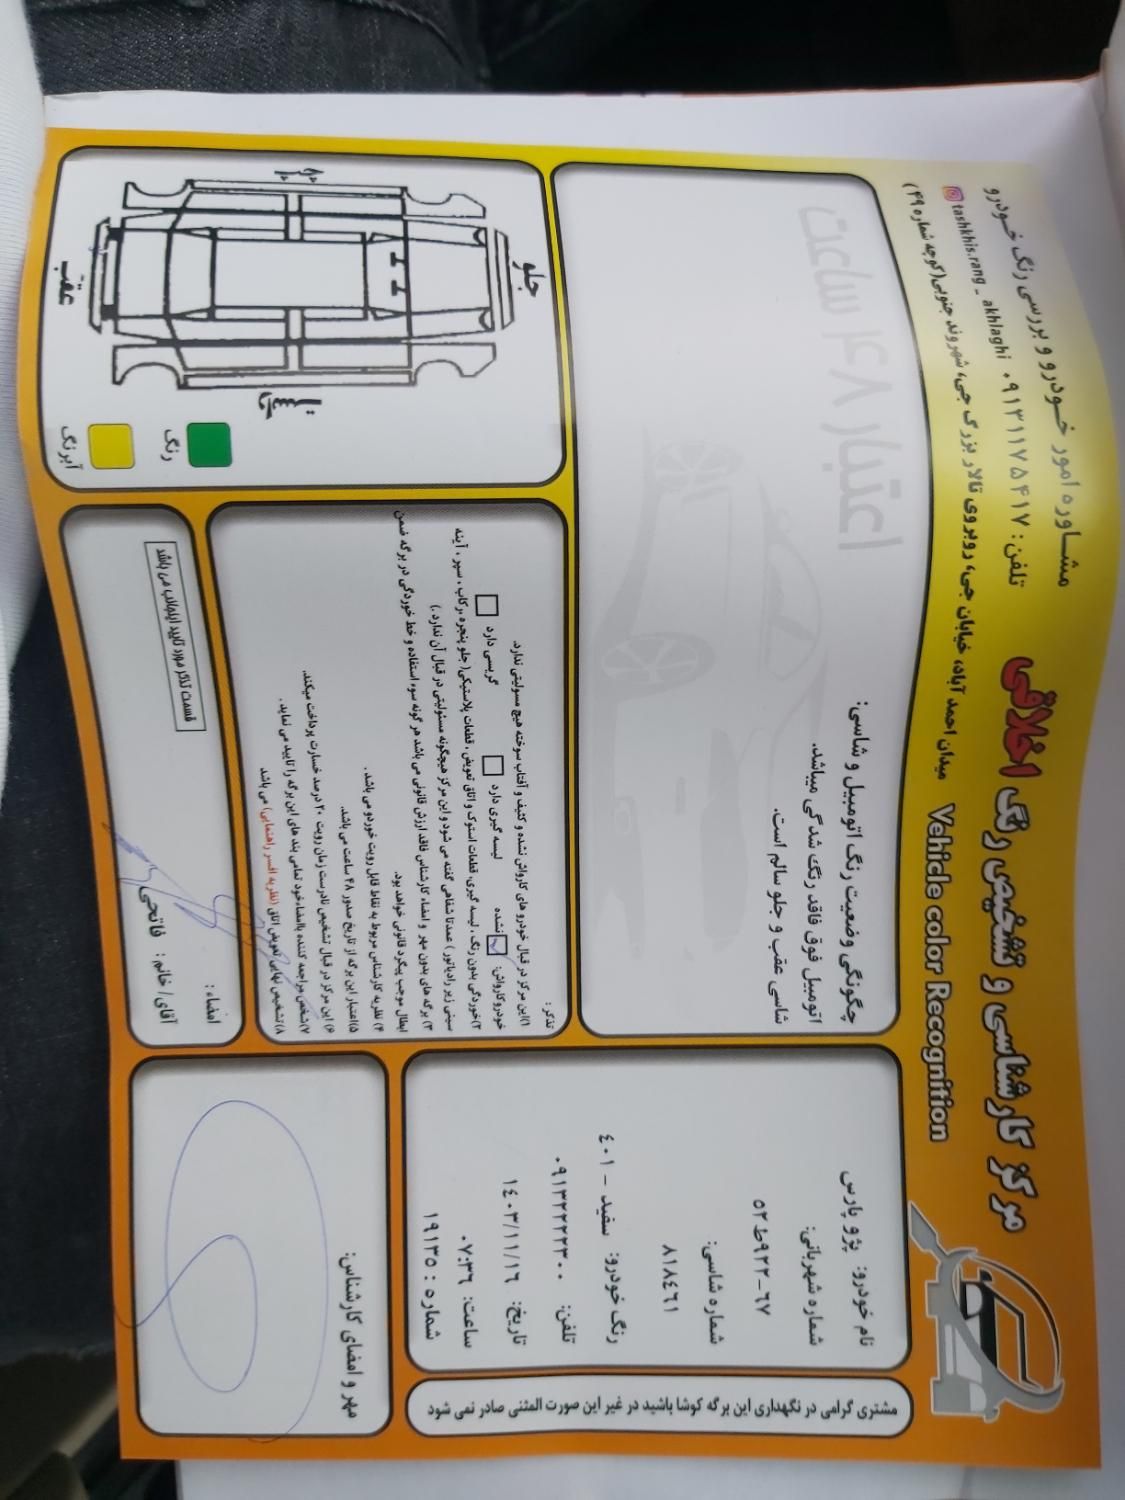 مشاوره امور خودرو و بررسی رنگ خودرو
مرکز کارشناسی و تشخیص رنگ اخلاقی
تلفن: ۰۹۱۳۱۱۷۵۴۱۷ tashkhis.rang_akhlaghi
Vehicle color Recognition
میدان احمد آباد، خیابان جی، روبروی تالار بزرگ جی، شهروند جنوبی(کوچه شماره ۴۹)
نام خودرو: پژو پارس
شماره شهربانی:
۵۲ط۹۲۲-۶۷
شماره شاسی:
۸۱۸٤٦۱
رنگ خودرو: سفید - ٤۰۱
تلفن: ۰۹۱۳۲۲۲۲۳۰۰
تاریخ: ۱٤۰۳/۱۱/۱٦
ساعت: ۰۷:۳٦
شماره: ۱۹۱۳٥
چگونگی وضعیت رنگ اتومبیل و شاسی:
اتومبیل فوق فاقد رنگ شدگی میباشد.
شاسی عقب و جلو سالم است.
اعتبار ۴۸ ساعت
جلو
چپ
راست
عقب
رنگ
آبرنگ
تذکر:
۱)این مرکز در قبال خودرو های کارواش نشده و کثیف و آفتاب سوخته هیچ مسولیتی ندارد.
خودروکارواش: نشده لیسه گیری دارد گریسی دارد
۲)خوردگی بدون رنگ، لیسه گیری، قطعات استوک و اتاق تعویض، قطعات پلاستیکی( جلو پنجره ،رکاب ، سپر ، آینه
سینی زیر رادیاتور ) عمدتا شفاهی گفته می شود و این مرکز هیچگونه مسئولیتی در قبال آن ندارد.)
۳) برگه های بدون مهر و امضاء کارشناس فاقد ارزش قانونی می باشد هر گونه سوء استفاده و خط خوردگی در برگه ضمن
ابطال موجب پیگرد قانونی خواهد بود.
۴) نظریه کارشناس مربوط به نقاط قابل رویت خودرو می باشد.
۵)اعتبار این برگه از تاریخ صدور ۴۸ ساعت می باشد.
۶) این مرکز در قبال تشخیص نادرست زمان رویت ۲۰ درصد خسارت پرداخت میکند.
۷)شخص مراجعه کننده باامضاءخود تمامی بند های این برگه را تایید می نماید.
۸)تشخیص نهایی تعویض اتاق (نظریه افسر راهنمایی) می باشد
امضاء:
آقای/ خانم: فاتحی
قسمت تذکر مورد تایید اینجانب می باشد
مهر و امضای کارشناس:
مشتری گرامی در نگهداری این برگه کوشا باشید در غیر این صورت المثنی صادر نمی شود